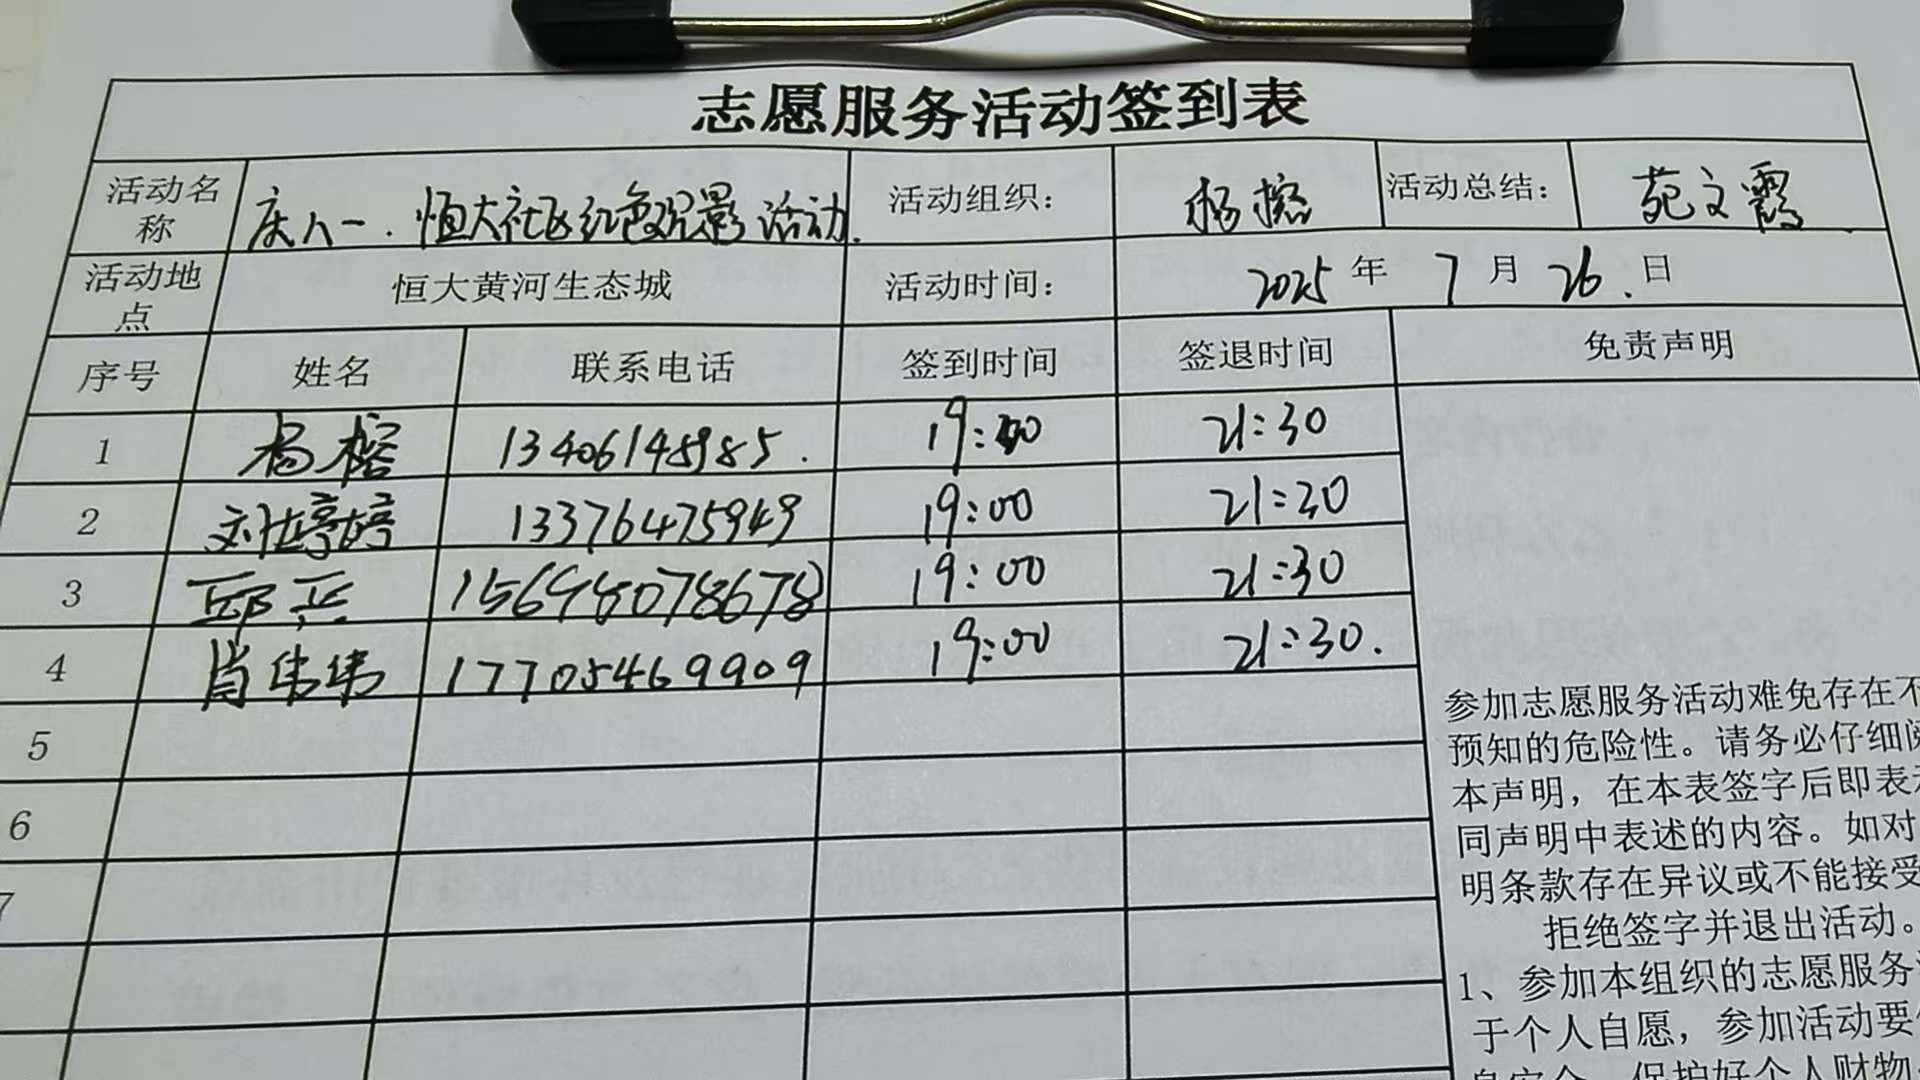 志愿服务活动签到表
活动名称 庆八一.恒大社区红色观影活动. 活动组织: 杨榕 活动总结: 苑文霞.
活动地点 恒大黄河生态城 活动时间: 2025 年 7 月 26. 日
序号 姓名 联系电话 签到时间 签退时间 免责声明
1 杨榕 13406145985. 19:00 21:30
2 刘婷婷 13376475949 19:00 21:30
3 邱兵 15698078678 19:00 21:30
4 肖伟伟 17705469909 19:00 21:30.
5
6
7
参加志愿服务活动难免存在不
预知的危险性。请务必仔细阅
本声明，在本表签字后即表示
同声明中表述的内容。如对
明条款存在异议或不能接受
拒绝签字并退出活动。
1、参加本组织的志愿服务活
于个人自愿，参加活动要
身安全，保护好个人财物